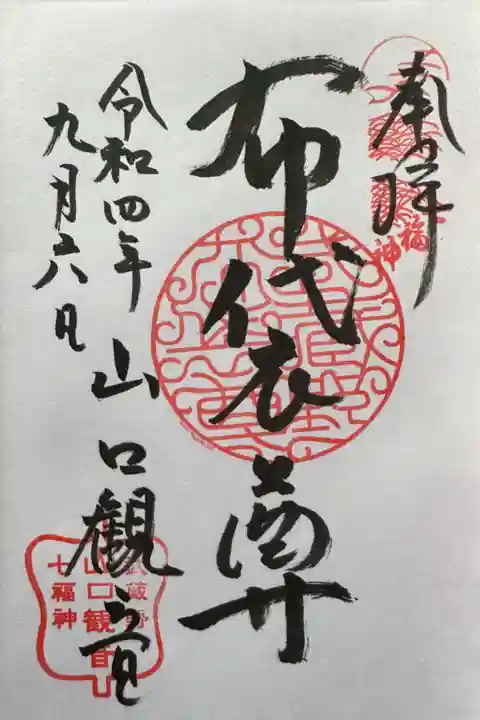 奉拝
布袋尊
山口観音
令和四年
九月六日
武蔵野
山口観音
七福神